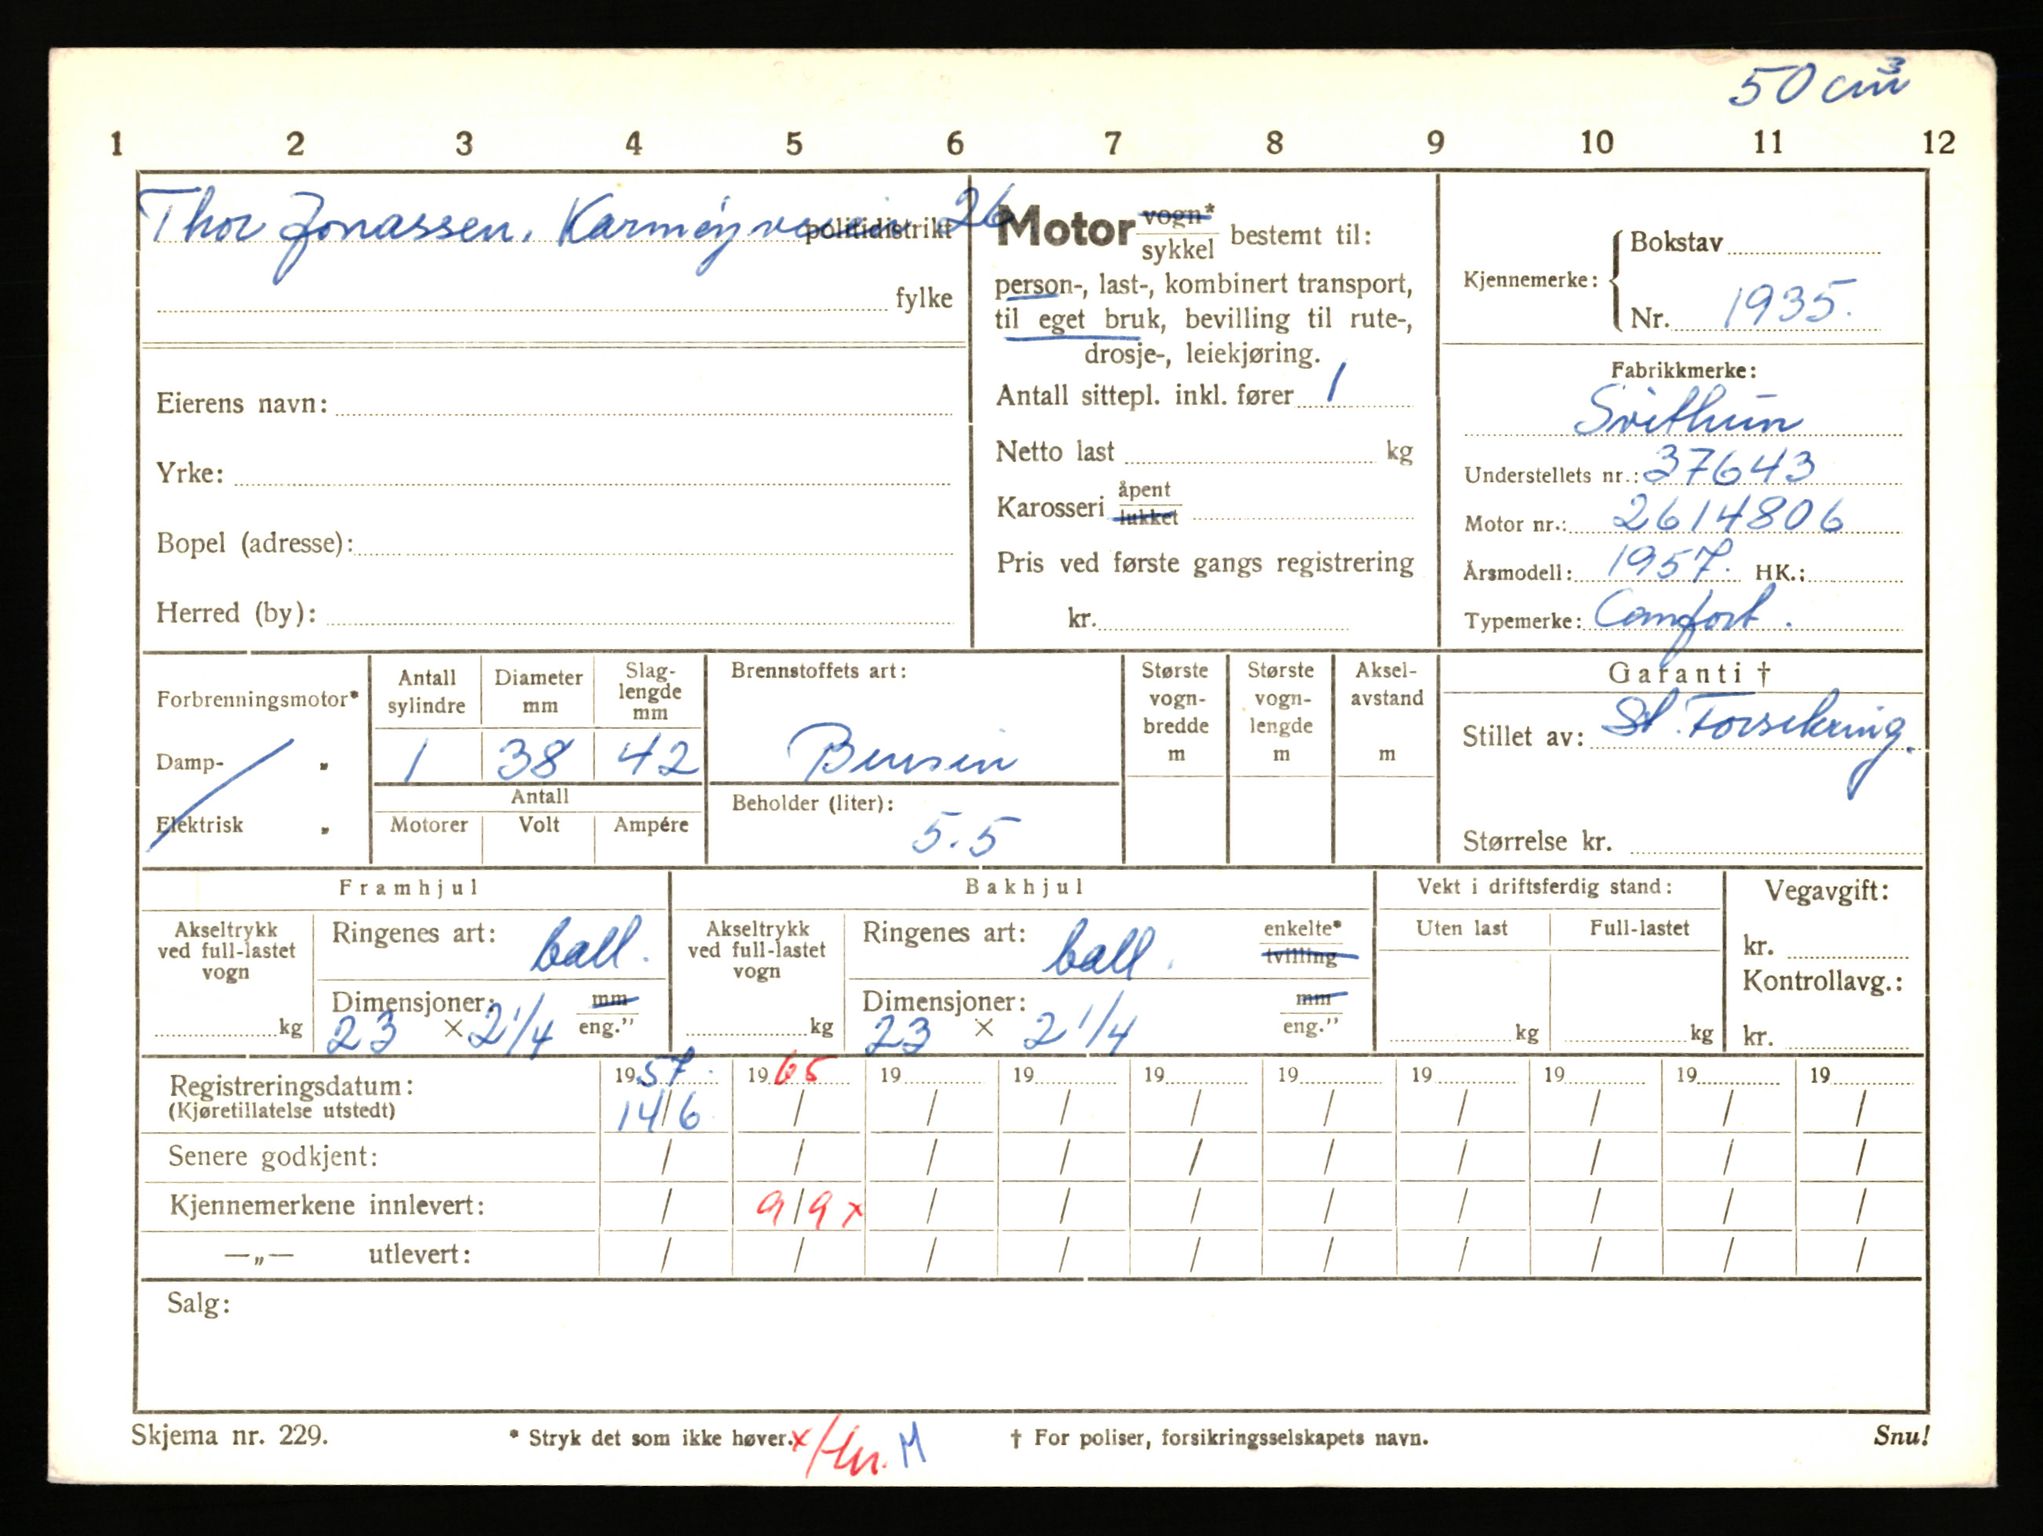 50 cm³
1 2 3 4 5 6 7 8 9 10 11 12
Thor Jonassen, Karmøyveien 26
politidistrikt
fylke
Eierens navn:
Yrke:
Bopel (adresse):
Herred (by):
Motor vogn* sykkel bestemt til:
person-, last-, kombinert transport,
til eget bruk, bevilling til rute-,
drosje-, leiekjøring.
Antall sittepl. inkl. fører 1
Netto last kg
Karosseri åpent lukket
Pris ved første gangs registrering
kr.
Kjennemerke: Bokstav
Nr. 1935.
Fabrikkmerke:
Svithun
Understellets nr.: 37643
Motor nr.: 2614806
Årsmodell: 1957. HK.:
Typemerke: Comfort.
Forbrenningsmotor*
Damp- "
Elektrisk "
Antall sylindre
1
Diameter mm
38
Slag-lengde mm
42
Antall
Motorer Volt Ampére
Brennstoffets art:
Bensin
Beholder (liter):
5.5
Største vogn-bredde m
Største vogn-lengde m
Aksel-avstand m
Garanti †
Stillet av: St. Forsikring.
Størrelse kr.
Framhjul
Akseltrykk ved full-lastet vogn
kg
Ringenes art: ball.
Dimensjoner: mm
23 × 2 1/4 eng."
Bakhjul
Akseltrykk ved full-lastet vogn
kg
Ringenes art: ball. enkelte* tvilling
Dimensjoner: mm
23 × 2 1/4 eng."
Vekt i driftsferdig stand:
Uten last Full-lastet
kg kg
Vegavgift:
kr.
Kontrollavg.:
kr.
Registreringsdatum: 1957. 1965 19 19 19 19 19 19 19 19
(Kjøretillatelse utstedt) 14/6 / / / / / / / / /
Senere godkjent: / / / / / / / / / /
Kjennemerkene innlevert: / 9/9 x / / / / / / / /
—„— utlevert: / / / / / / / / / /
Salg:
Skjema nr. 229. * Stryk det som ikke høver. x M † For poliser, forsikringsselskapets navn. Snu!